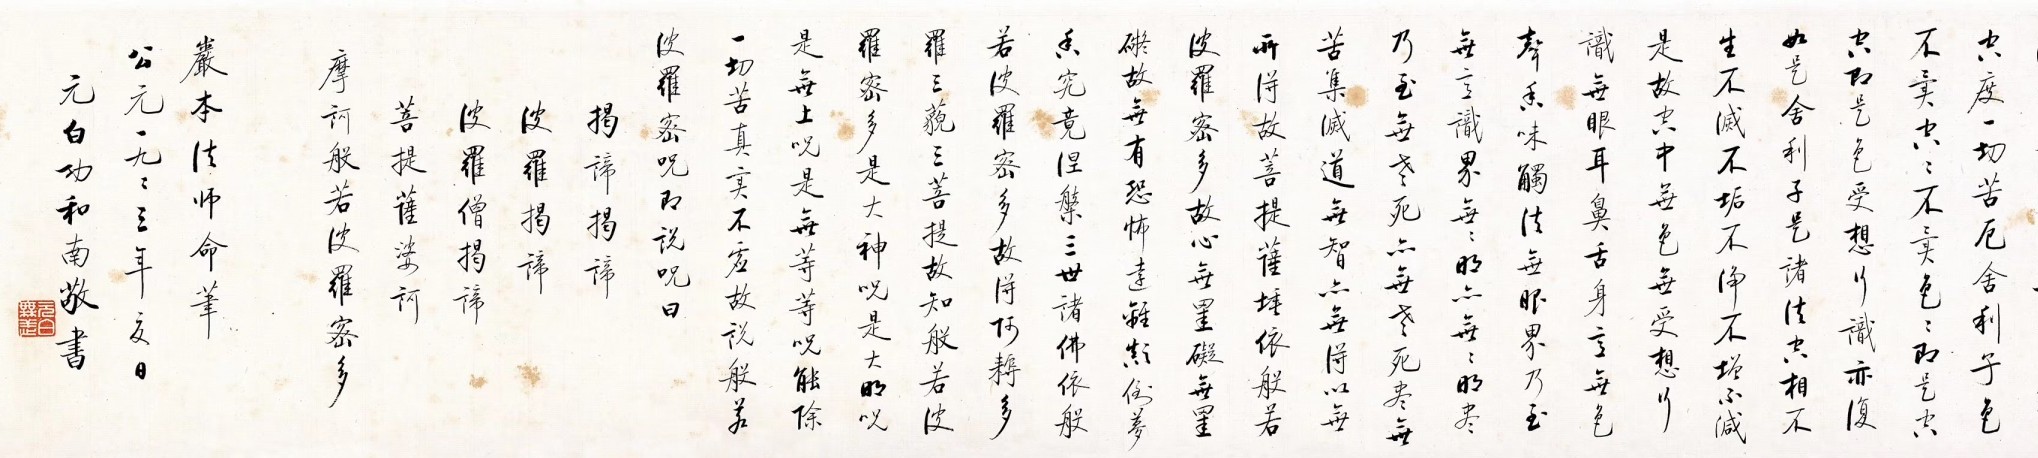 空度一切苦厄舍利子色
不異空〻不異色〻即是空
空即是色受想行識亦復
如是舍利子是諸法空相不
生不滅不垢不淨不增不減
是故空中無色無受想行
識無眼耳鼻舌身意無色
聲香味觸法無眼界乃至
無意識界無〻明亦無〻明盡
乃至無老死亦無老死盡無
苦集滅道無智亦無得以無
所得故菩提薩埵依般若
波羅密多故心無罣礙無罣
礙故無有恐怖遠離顛倒夢
想究竟涅槃三世諸佛依般
若波羅密多故得阿耨多
羅三藐三菩提故知般若波
羅密多是大神咒是大明咒
是無上咒是無等等咒能除
一切苦真實不虛故說般若
波羅密咒即說咒曰
揭諦揭諦
波羅揭諦
波羅僧揭諦
菩提薩婆訶
摩訶般若波羅密多
嚴本法師命筆
公元一九〻三年夏日
元白功和南敬書